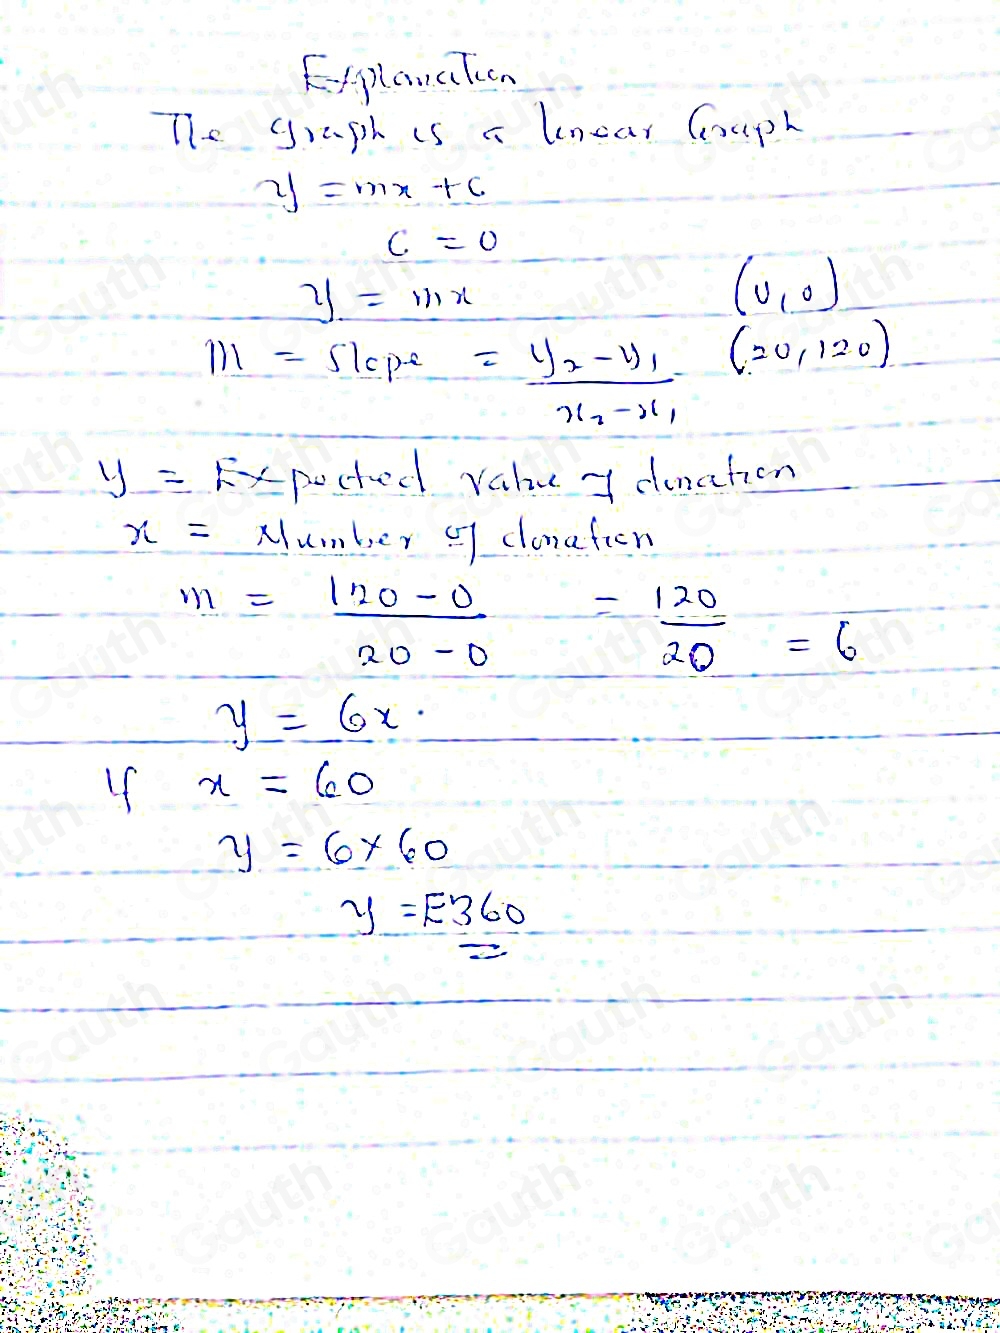 Explanation
The graph is a linear Graph
y = mx + c
c = 0
y = mx (0, 0)
m = Slope = y₂ - y₁ / x₂ - x₁ (20, 120)
y = Expected value of donation
x = Number of donation
m = 120 - 0 / 20 - 0 = 120 / 20 = 6
y = 6x.
If x = 60
y = 6 × 60
y = E360